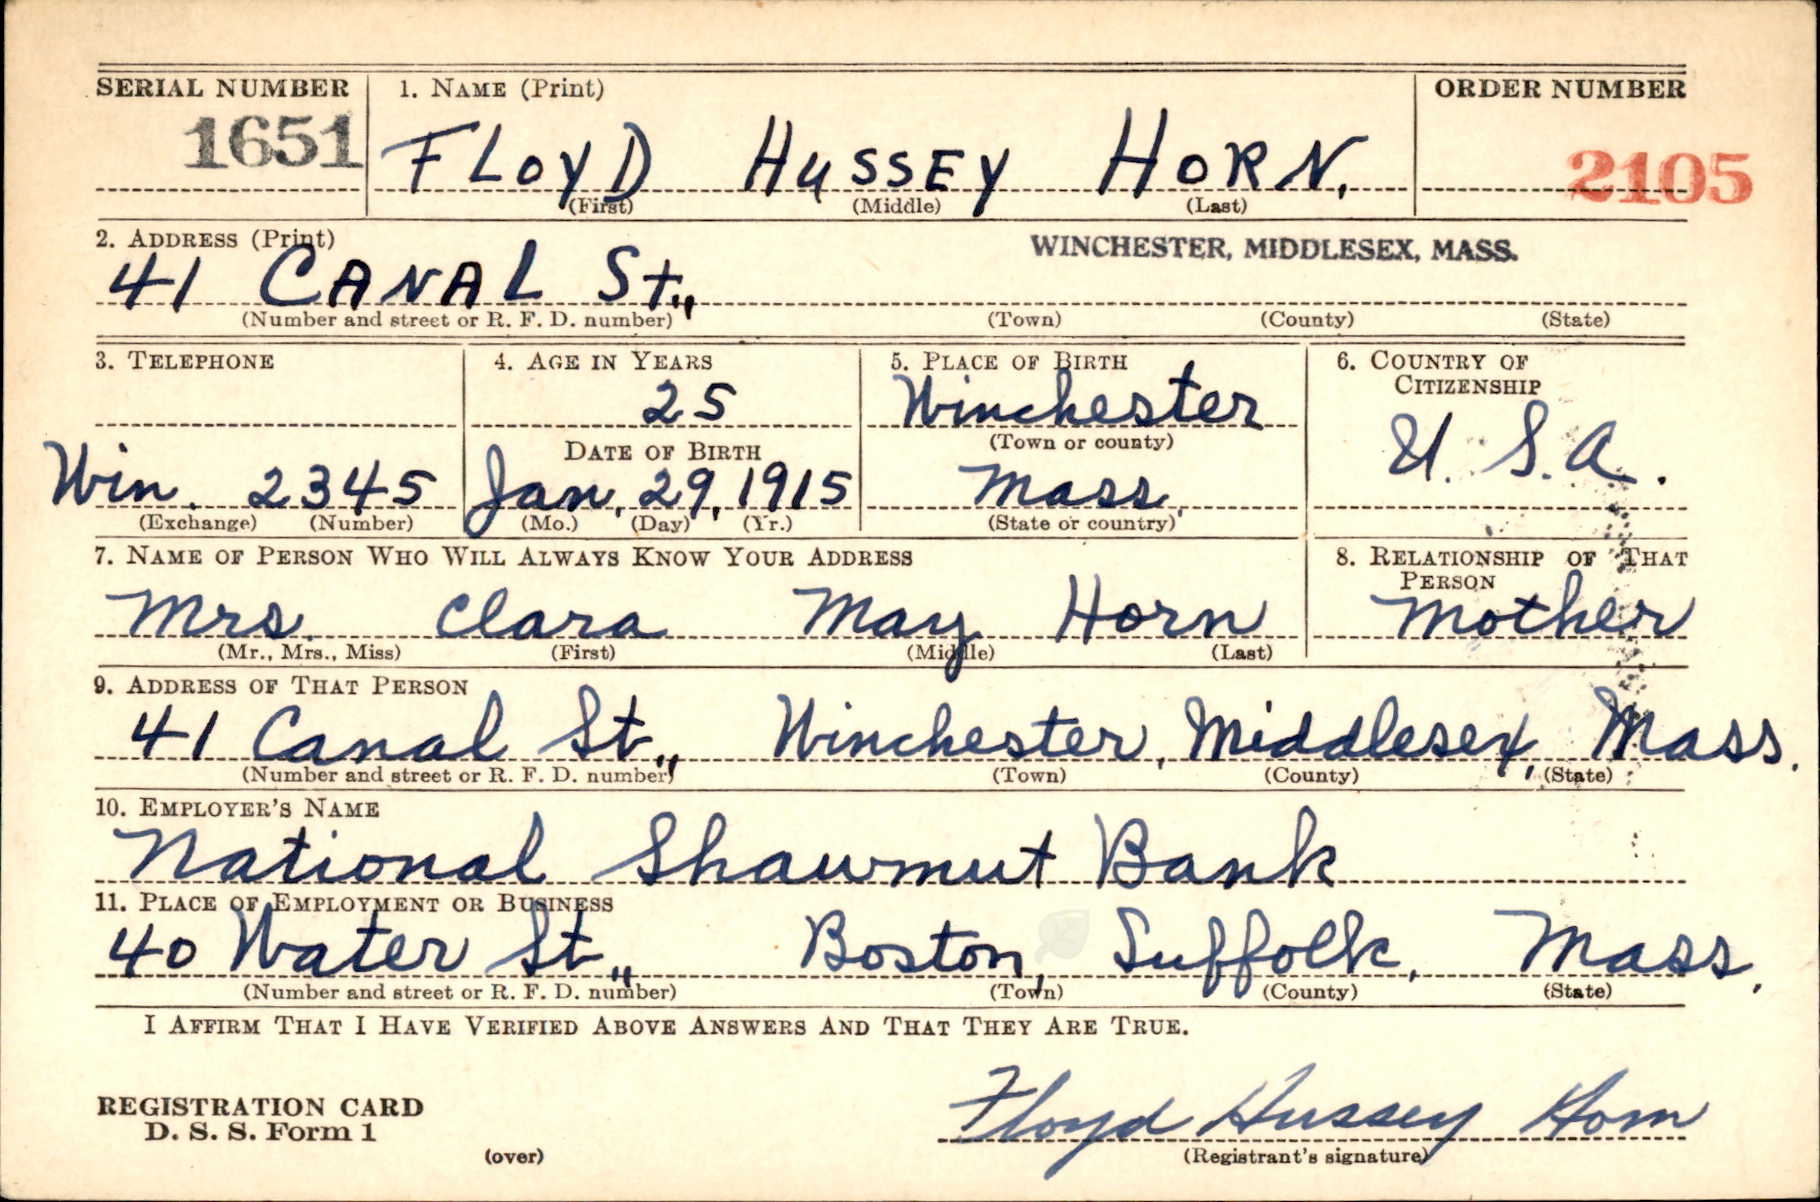 SERIAL NUMBER 1. NAME (Print) ORDER NUMBER
1651 FLOYD HUSSEY HORN. 2105
(First) (Middle) (Last)
2. ADDRESS (Print) WINCHESTER, MIDDLESEX, MASS.
41 CANAL St.,
(Number and street or R. F. D. number) (Town) (County) (State)
3. TELEPHONE 4. AGE IN YEARS 5. PLACE OF BIRTH 6. COUNTRY OF CITIZENSHIP
25 Winchester U. S. A.
DATE OF BIRTH (Town or county)
Win. 2345 Jan. 29, 1915 Mass.
(Exchange) (Number) (Mo.) (Day) (Yr.) (State or country)
7. NAME OF PERSON WHO WILL ALWAYS KNOW YOUR ADDRESS 8. RELATIONSHIP OF THAT PERSON
Mrs. Clara May Horn Mother
(Mr., Mrs., Miss) (First) (Middle) (Last)
9. ADDRESS OF THAT PERSON
41 Canal St., Winchester, Middlesex, Mass.
(Number and street or R. F. D. number) (Town) (County) (State)
10. EMPLOYER'S NAME
National Shawmut Bank
11. PLACE OF EMPLOYMENT OR BUSINESS
40 Water St., Boston, Suffolk, Mass.
(Number and street or R. F. D. number) (Town) (County) (State)
I AFFIRM THAT I HAVE VERIFIED ABOVE ANSWERS AND THAT THEY ARE TRUE.
REGISTRATION CARD
D. S. S. Form 1
Floyd Hussey Horn
(over) (Registrant's signature)